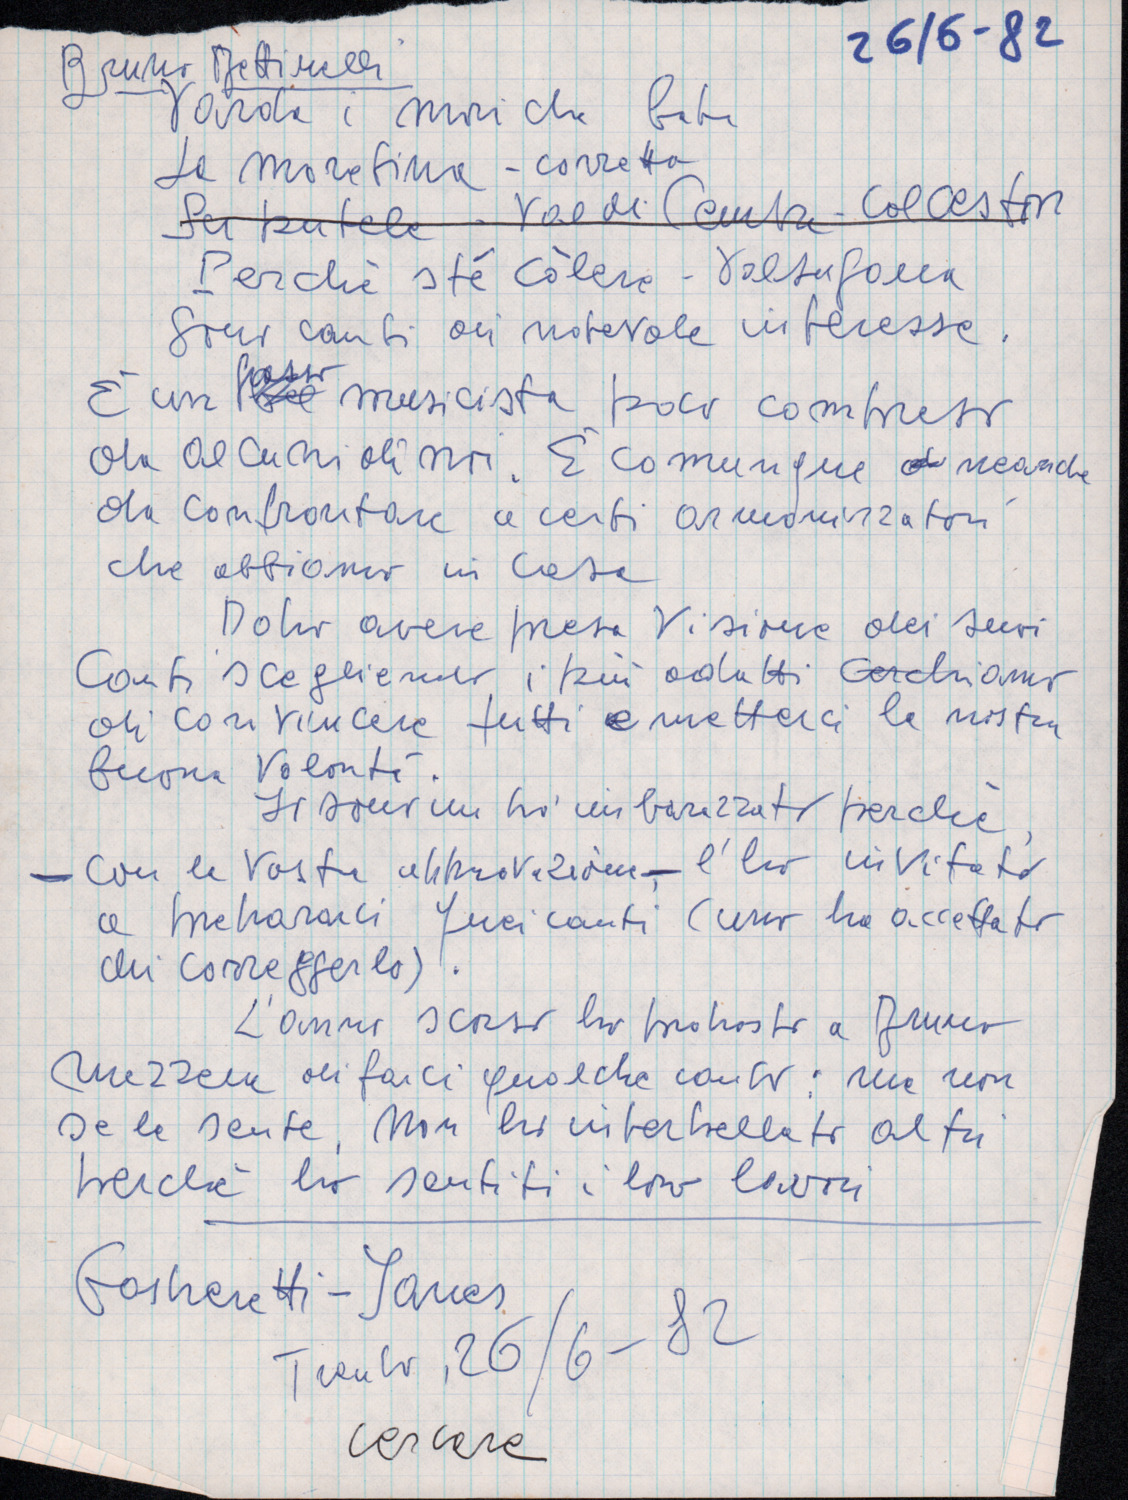 26/6-82
Bruno Bettinelli
Varda i mori che bate
La moretina - corretta
Val di Cembra - Col Castion
Perchè sté còlere - Valsugana
Sono canti di notevole interesse.
È un grosso musicista poco compreso
da alcuni di noi. È comunque neanche
da confrontare a certi armonizzatori
che abbiamo in casa
Dopo avere presa visione dei suoi
Canti scegliendo i più adatti cerchiamo
di convincere tutti e metterci la nostra
buona volontà.
Io sono un po' imbarazzato perchè,
- con la vostra approvazione, - l'ho invitato
a prepararci quei canti (uno ha accettato
di correggerlo).
L'anno scorso ho proposto a Bruno
Mezzena di farci qualche canto: ma non
se la sente. Non ho interpellato altri
perchè ho sentiti i loro lavori
Gasperetti - Janes
Trento, 26/6-82
cercare